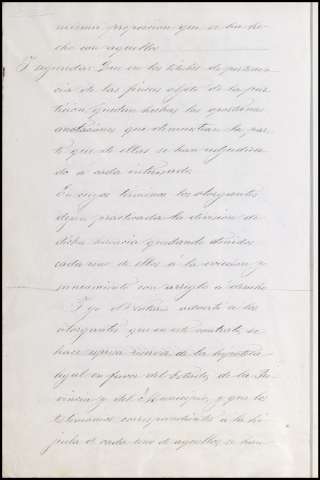 misma proporcion que se ha he-
cho con aquellos
Y segunda: Que en los titulos de pertenen-
cia de las fincas objeto de la par-
ticion, quedan hechas las oportunas
anotaciones que demuestran la par-
te que de ellas se han adjudica-
do a cada interesado.
En cuyos terminos los otorgantes
dejan practicada la division de
dicha herencia quedando tenidos
cada uno de ellos á la eviccion y
saneamiento con arreglo a derecho
Y yo el Notario advertí a los
otorgantes que en este contrato, se
hace expresa reserva de la hipoteca
legal en favor del Estado, de la Pro-
vincia y del Municipio, y que los
testimonios correspondientes á la hi-
juela de cada uno de aquellos se han